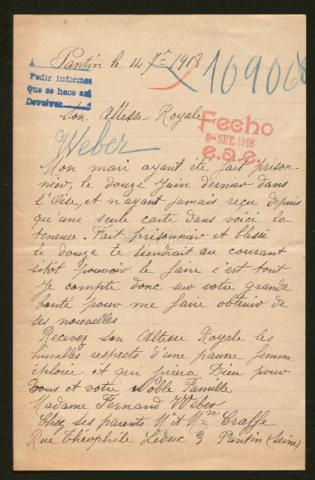 Pantin le 14 7re 1918
A
Pedir informes
Que se hace así
Devolver
109068
Son Altesse Royale
Fecho
SET. 1918
e.a.c.
Weber
Mon mari ayant été fait prison-
nier, le douze Juin dernier dans
l'Oise, et n'ayant jamais reçu depuis
qu'une seule carte dans voici la
teneure. Fait prisonnier et blessé
le douze te tiendrait au courant
sitôt pouvoir le faire c'est tout
Je compte donc sur votre grande
bonté pour me faire obtenir de
ses nouvelles
Recevez Son Altesse Royale les
humbles respects d'une pauvre femme
éplorée et qui priera Dieu pour
vous et votre Noble Famille
Madame Fernand Weber
Chez ses parents Mr et Mme Craffe
Rue Théophile Leduc 3 Pantin (Seine)